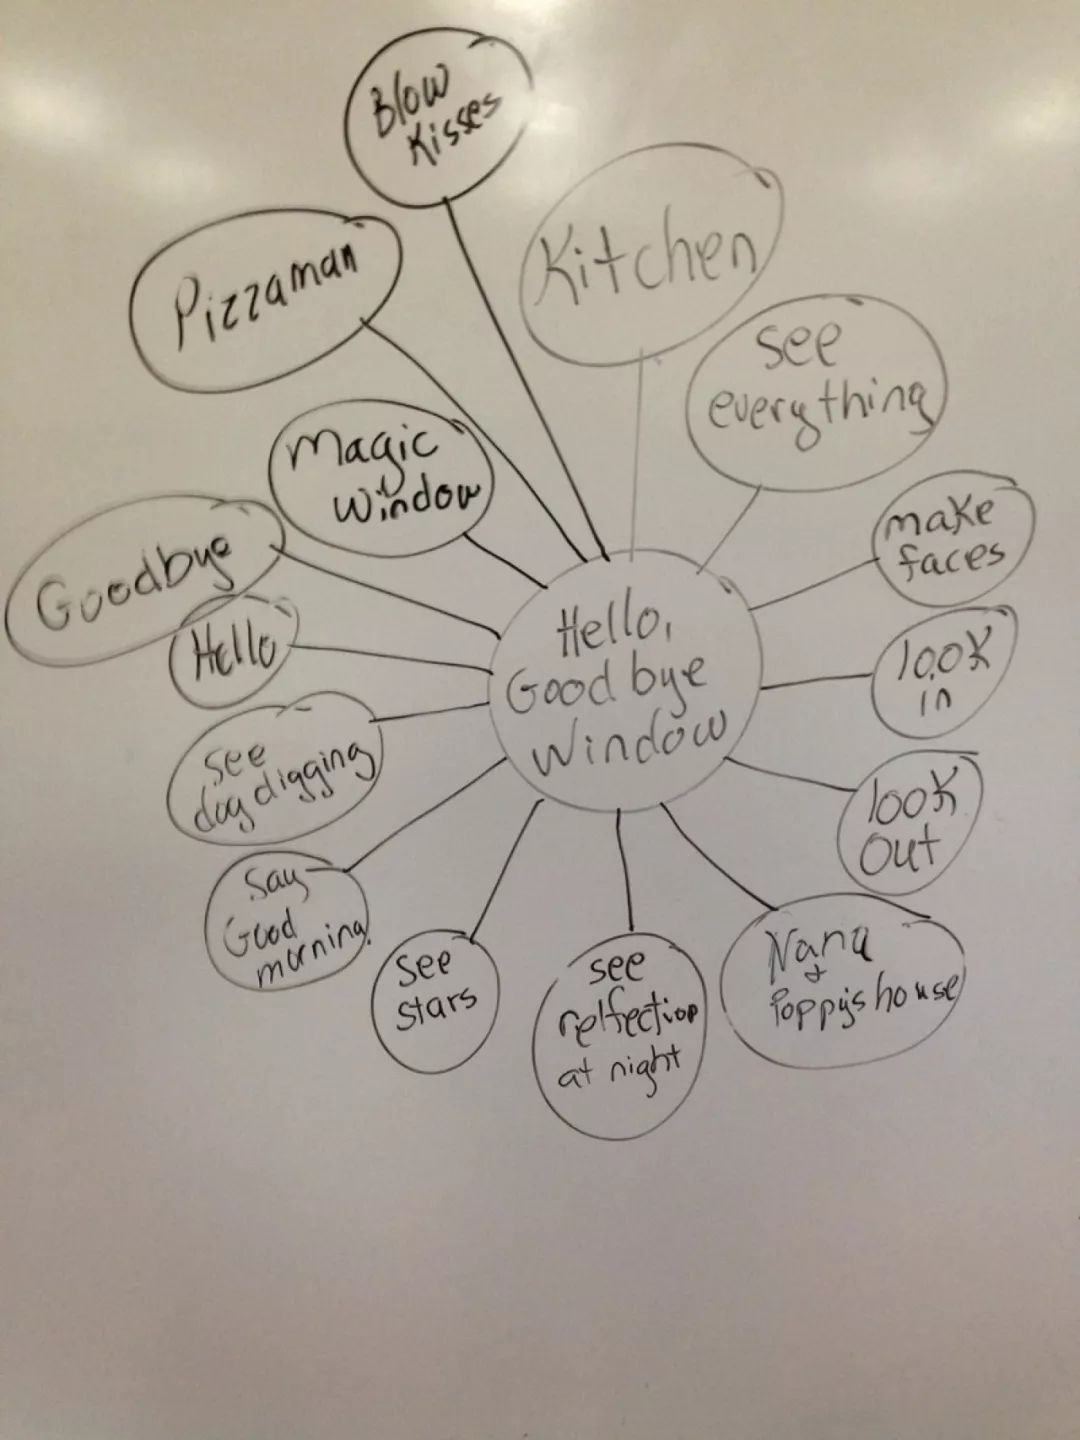 Blow
Kisses
Kitchen
Pizzaman
see
everything
Magic
Window
make
faces
Goodbye
Hello
Hello,
Good bye
Window
look
in
see
dog digging
look
out
Say
Good
morning
see
stars
see
relfection
at night
Nana
+
Poppy's house